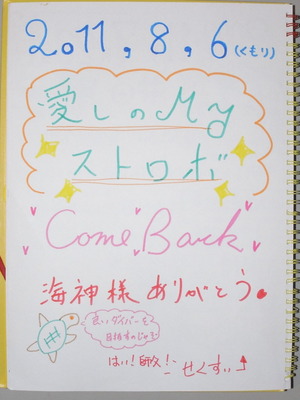 2011,8,6(くもり)
愛しのMy
ストロボ
Come Back
海神様ありがとう。
良いダイバーを
目指すのじゃぞ
はい!師父!
せくすぃー